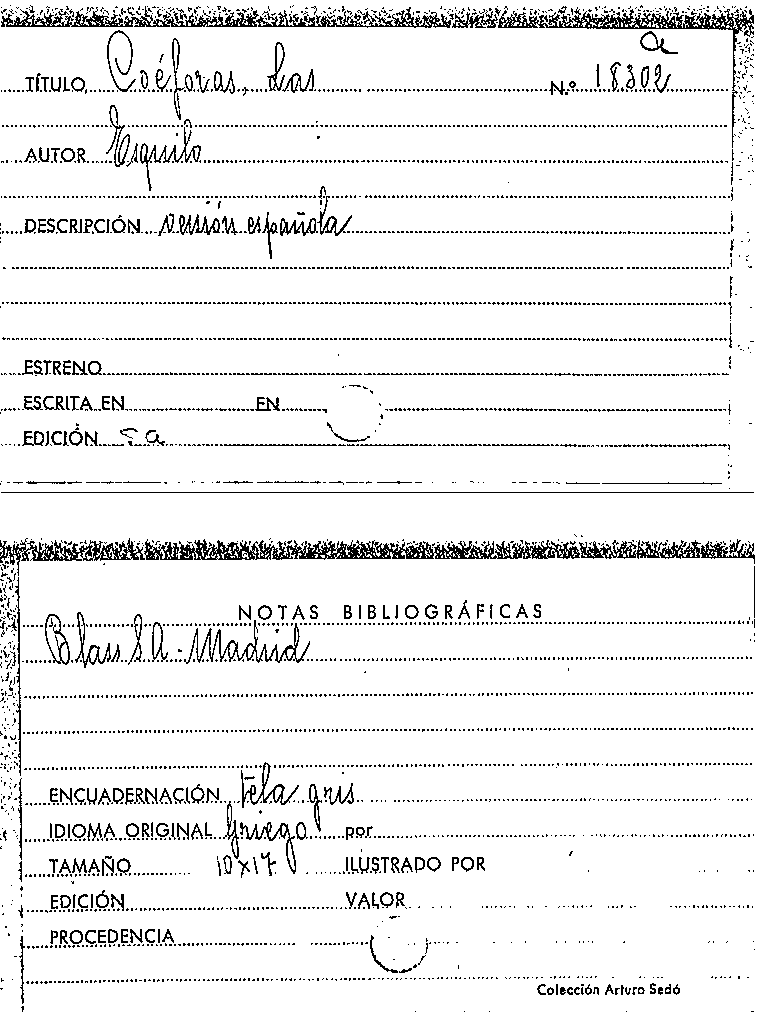 a
TÍTULO Coéforas, Las N.º 18302
AUTOR Esquilo
DESCRIPCIÓN versión española
ESTRENO
ESCRITA EN EN
EDICIÓN s.a
NOTAS BIBLIOGRÁFICAS
Blass S.A. - Madrid
ENCUADERNACIÓN tela gris
IDIOMA ORIGINAL Griego por
TAMAÑO 10x17 ILUSTRADO POR
EDICIÓN VALOR
PROCEDENCIA
Colección Arturo Sedó